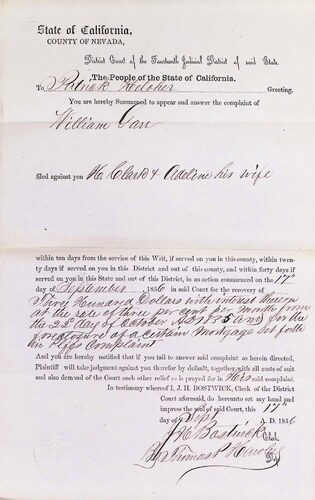 State of California,
COUNTY OF NEVADA,
District Court of the Fourteenth Judicial District of said State.
The People of the State of California.
To Patrick Kelcher Greeting.
You are hereby Summoned to appear and answer the complaint of
William Carr
filed against you H. Clark & Adeline his wife
within ten days from the service of this Writ, if served on you in this county, within twen-
ty days if served on you in this District and out of this county, and within forty days if
served on you in this State and out of this District, in an action commenced on the 17th
day of September 1856 in said Court for the recovery of
Three Hundred Dollars with interest thereon
at the rate of three per cent per month from
the 22d day of October and for the
foreclosure of a certain mortgage set forth
the Plffs Complaint
And you are hereby notified that if you fail to answer said complaint as herein directed,
Plaintiff will take judgment against you therefor by default, together with all costs of suit
and also demand of the Court such other relief as is prayed for in said complaint.
In testimony whereof I, J. H. BOSTWICK, Clerk of the District
Court aforesaid, do hereunto set my hand and
impress the seal of said Court, this 17
day of Sept A. D. 1856
J H Bostwick Clk.
By Thomas P